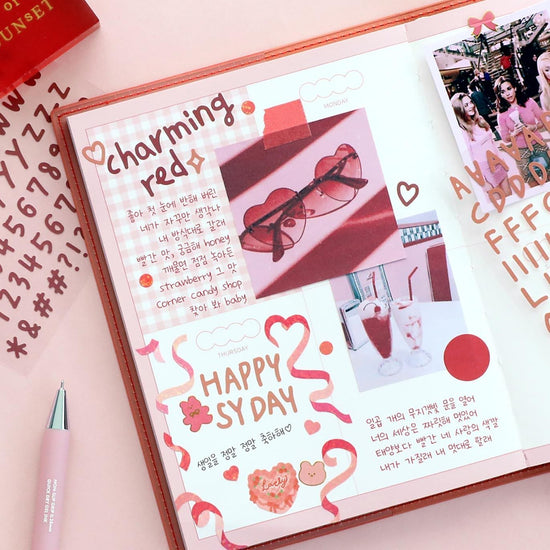 of
SUNSET
charming
red
MONDAY
좋아 첫 눈에 반해 버린
네가 자꾸만 생각나
내 방식대로 갈래
빨간 맛, 궁금해 honey
깨물면 점점 녹아든
strawberry 그 맛
corner candy shop
찾아 봐 baby
THURSDAY
HAPPY
SY DAY
생일을 정말 정말 축하해♡
Lovely
일곱 개의 무지갯빛 문을 열어
너의 세상은 짜릿해 멋있어
태양보다 빨간 네 사랑의 색깔
내가 가질래 내 맘대로 할래
AVAVAVA
CDDDD
FFFF
IIIIII
LL
YZZZ
678
6789
012345
123456
*&##???